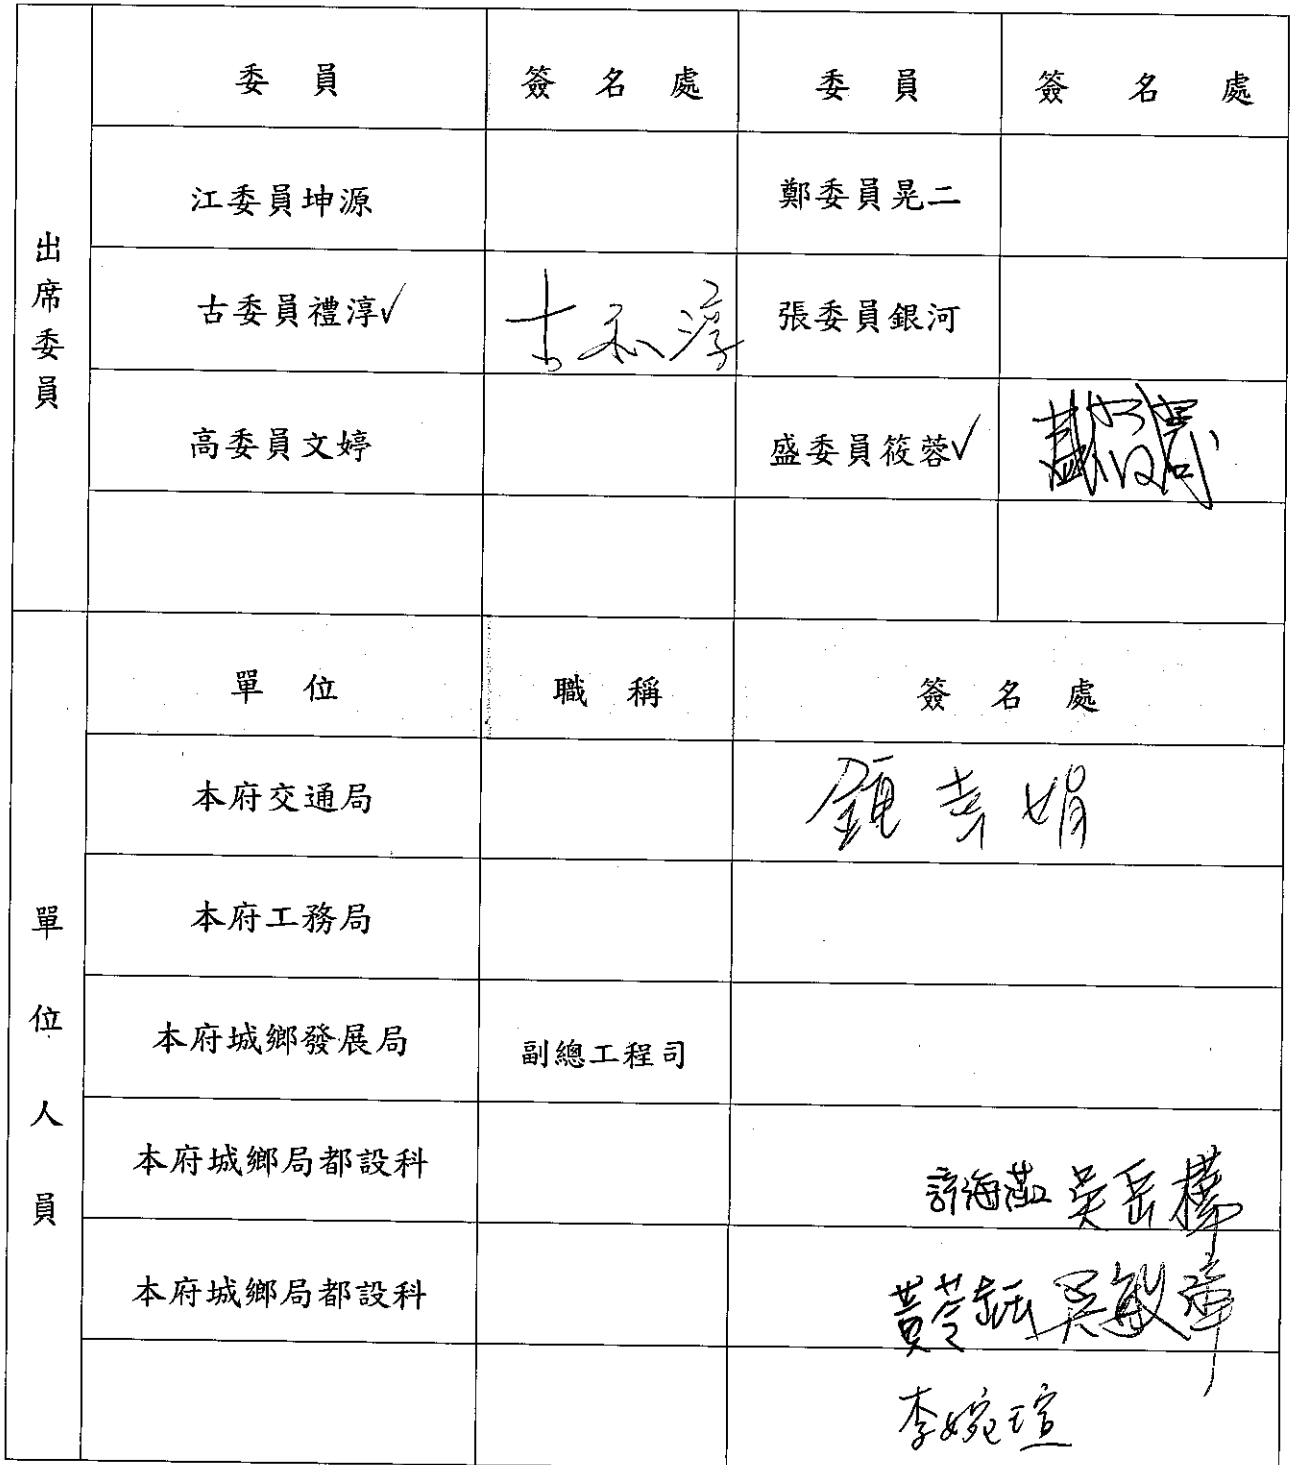 出席委員
委員 簽名處 委員 簽名處
江委員坤源 鄭委員晃二
古委員禮淳✓ 古礼淳 張委員銀河
高委員文婷 盛委員筱蓉✓ 盛筱蓉
單位人員
單位 職稱 簽名處
本府交通局 鍾幸娟
本府工務局
本府城鄉發展局 副總工程司
本府城鄉局都設科 許海茹 吳岳樺
本府城鄉局都設科 吳敏瑋
李婉瑄